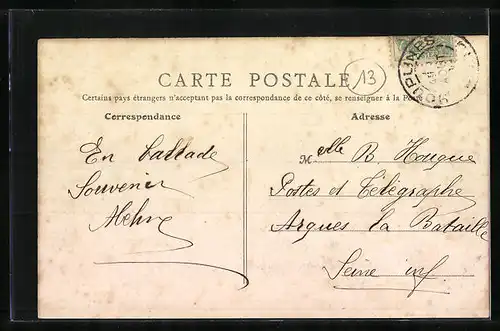 CARTE POSTALE
13
HOUPLINES
Certains pays étrangers n'acceptant pas la correspondance de ce côté, se renseigner à la Poste
Correspondance
Adresse
En Ballade
Souvenir
Melle B. Hougue
Postes et Télégraphe
Arques la Bataille
Seine inf